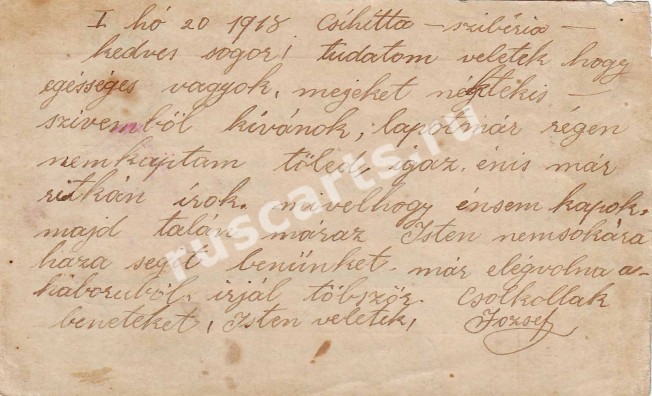 I hó 20 1918 Csihitta - szibéria -
kedves sogor! tudatom veletek hogy
egésséges vagyok, mejeket néktekis -
szivemből kívánok, lapotmár régen
nemkaptam töled, igaz, énis már
ritkán írok. mivelhogy énsem kapok.
majd talán maraz Isten nemsokára
haza segit benünket - már elégvolna a-
háboruból. irjál többször. Csolkollak
beneteket, Isten veletek, Jozsef
ruscarts.ru